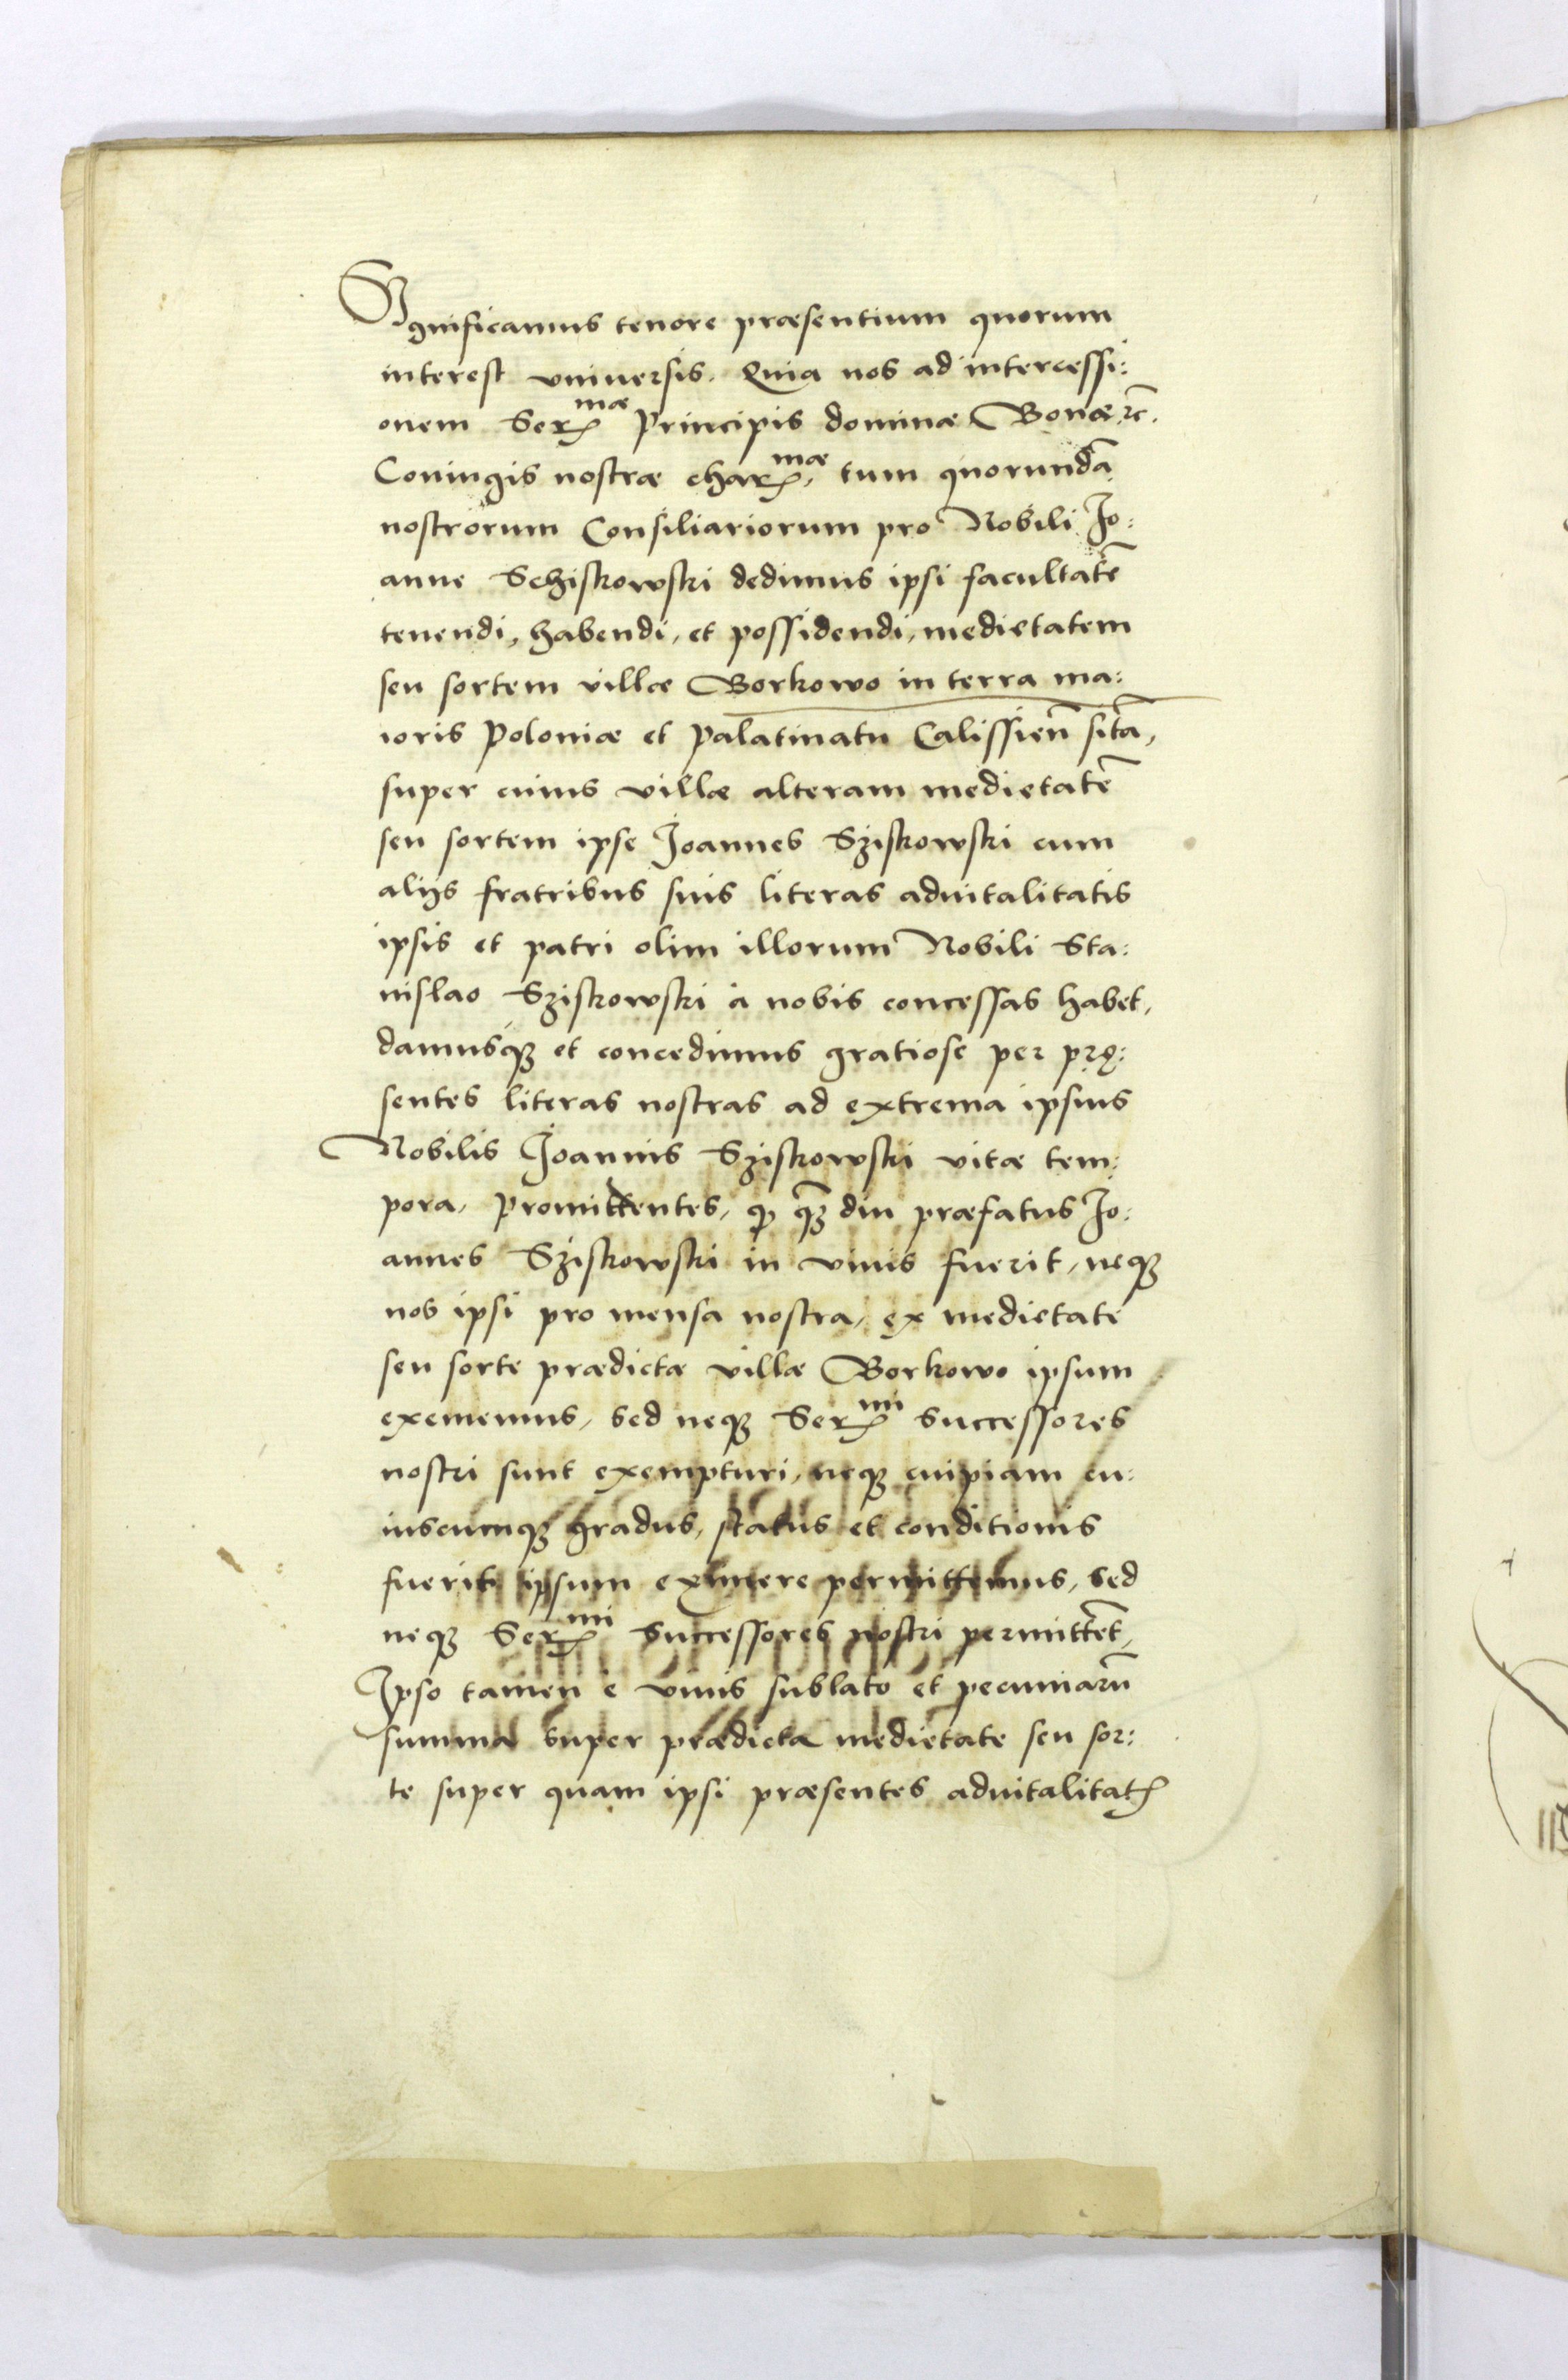 Significamus tenore præsentium quorum
interest vniuersis. Quia nos ad intercessi:
onem Ser^mæ Principis dominæ Bonæ ꝛc.
Coniugis nostræ char^mæ, tum quorundã
nostrorum Consiliariorum pro Nobili Jo:
anne Schiskowski dedimus ipsi facultatẽ
tenendi, habendi, et possidendi, medietatem
seu sortem villæ Borkowo in terra ma:
ioris Poloniæ et Palatinatu Calissień sitã,
super cuius villæ alteram medietatẽ
seu sortem ipse Joannes Sziskowski cum
alijs fratribus suis literas aduitalitatis
ipsis et patri olim illorum Nobili Sta:
nislao Sziskowski à nobis concessas habet,
damusqꝫ et concedimus gratiose per prę:
sentes literas nostras ad extrema ipsius
Nobilis Joannis Sziskowski vitæ tem:
pora, Promittentes, ꝙ qꝫ diu præfatus Jo:
annes Sziskowski in viuis fuerit, neqꝫ
nos ipsi pro mensa nostra, ex medietate
seu sorte prædictæ villæ Borkowo ipsum
exememus, sed neqꝫ Ser^mi Successores
nostri sunt exempturi, neqꝫ cuipiam cu:
iuscumqꝫ gradus, status et conditionis
fuerit ipsum eximere permittemus, sed
neqꝫ Ser^mi Successores nostri permittẽt,
Ipso tamen e viuis sublato et pecuniarũ
summa super prædicta medietate seu sor:
te super quam ipsi præsentes aduitalitatꝭ